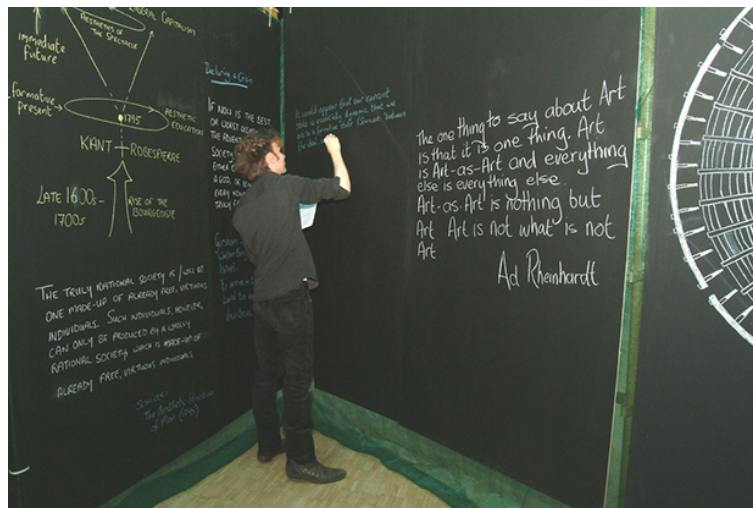 LIBERAL CAPITALISM
AESTHETICS OF
THE SPECTACLE
immediate
future
formative
present
1795
AESTHETIC
EDUCATION
KANT
ROBESPIERRE
LATE 1600s-
1700s
RISE OF THE
BOURGEOISIE
THE TRULY RATIONAL SOCIETY IS / WILL BE
ONE MADE-UP OF ALREADY FREE, VIRTUOUS
INDIVIDUALS. SUCH INDIVIDUALS, HOWEVER,
CAN ONLY BE PRODUCED BY A WHOLLY
RATIONAL SOCIETY, WHICH IS MADE-UP OF
ALREADY FREE, VIRTUOUS INDIVIDUALS
SOURCE:
The Aesthetic Education
of Man (1795)
Declaring a Crisis
IF NOW IS THE BEST
OR WORST
THE
SOCIETY
EITHER
A GOD, OR
EVERY
TRULY
It would appear that our current
state is evidently dynamic that we
are in a formative state between
the
The one thing to say about Art
is that it is one thing. Art
is Art-as-Art and everything
else is everything else.
Art-as-Art is nothing but
Art Art is not what is not
Art
Ad Rheinhardt